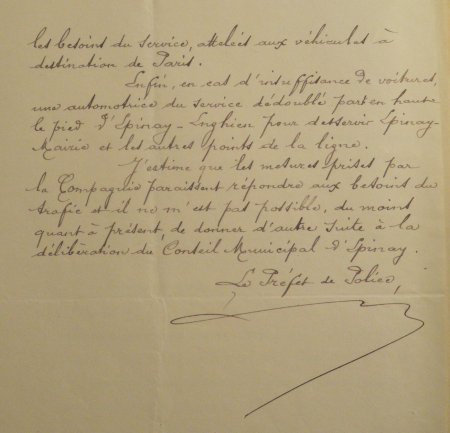 les besoins du service, attelées aux véhicules à
destination de Paris.
Enfin, en cas d'insuffisance de voitures,
une automotrice du service dédoublé part en haut
le pied d'Epinay-Enghien pour desservir Epinay-
Mairie et les autres points de la ligne.
J'estime que les mesures prises par
la Compagnie paraissent répondre aux besoins du
trafic et il ne m'est pas possible, du moins
quant à présent, de donner d'autre suite à la
délibération du Conseil Municipal d'Epinay.
Le Préfet de Police,